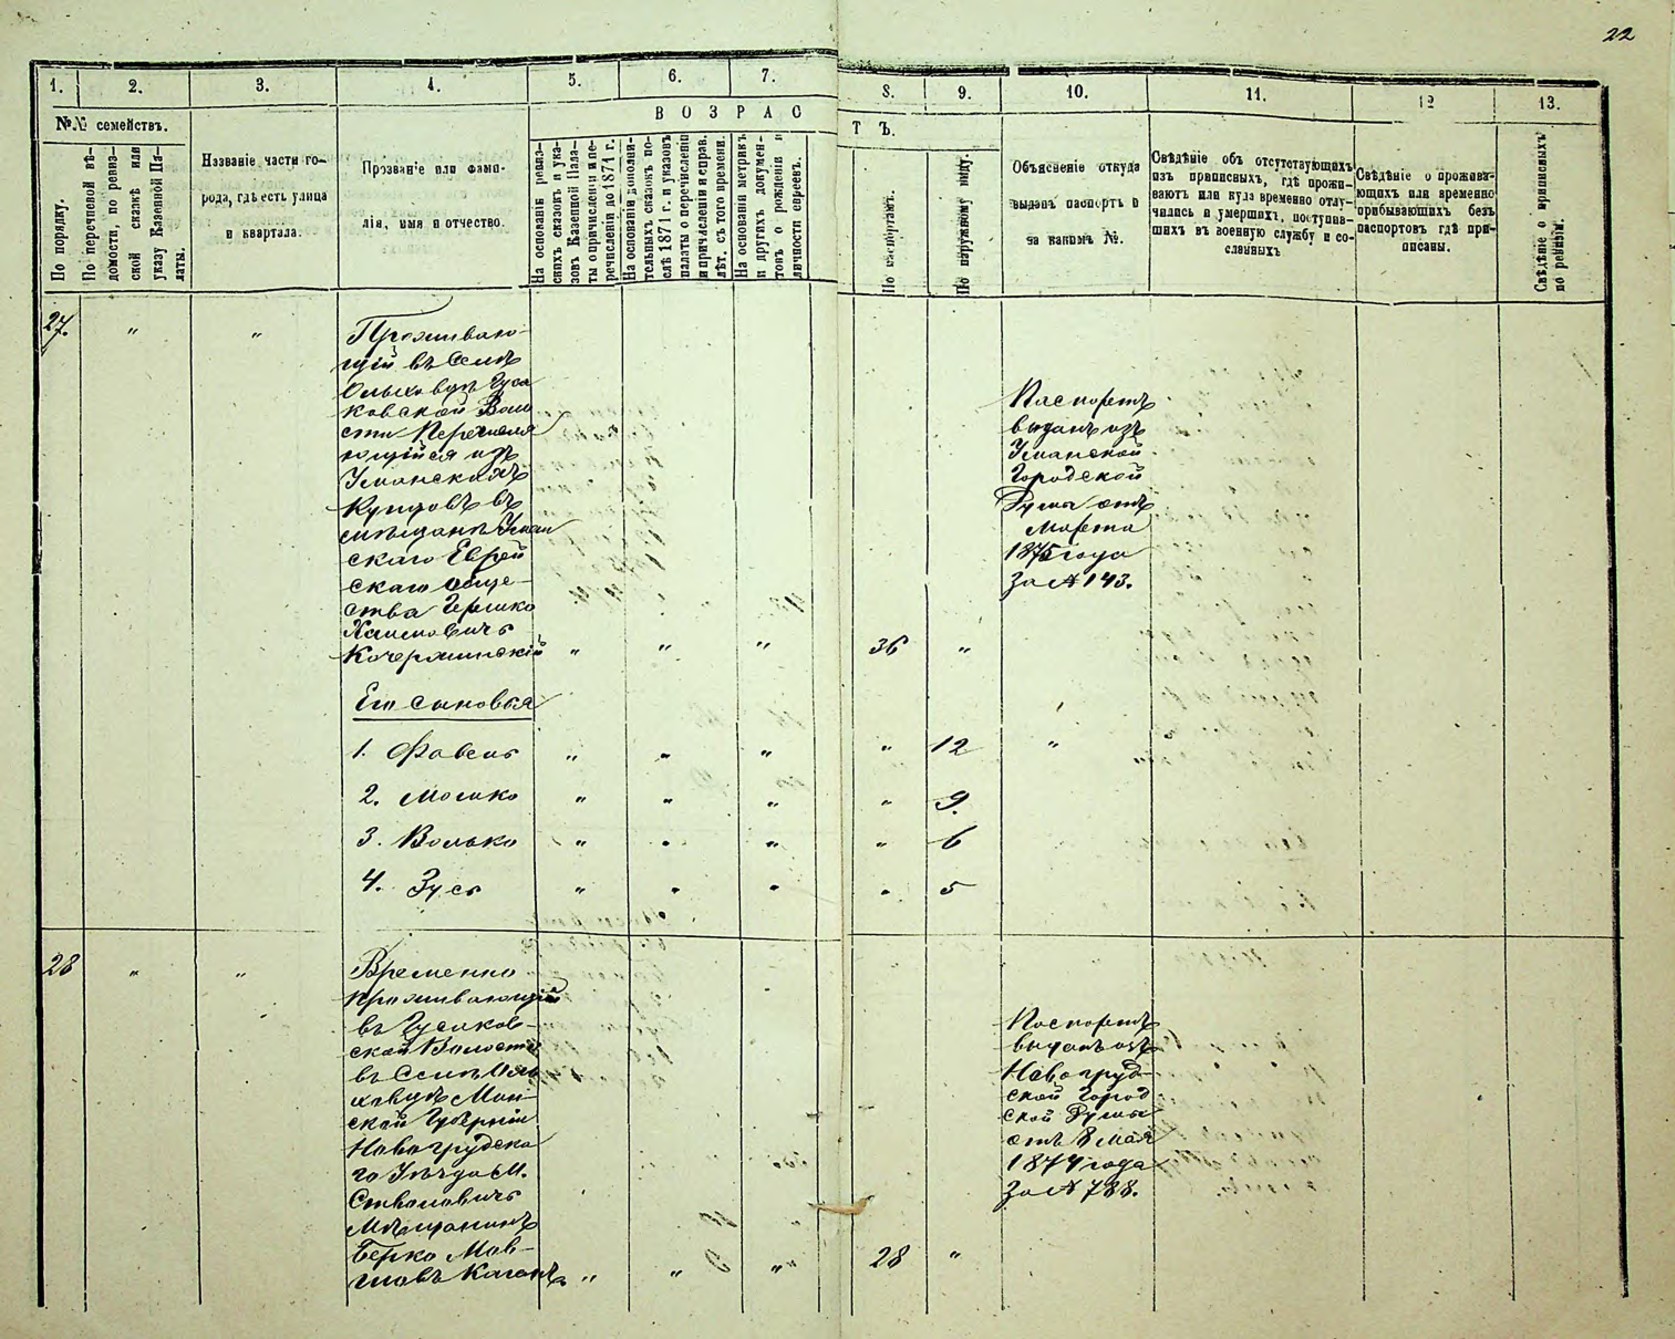 22
1.
2.
3.
4.
5.
6.
7.
8.
9.
10.
11.
12
13.
№№ семействъ.
По порядку.
По перечневой вѣ-
домости, по ревиз-
ской сказкѣ или
указу Казенной Па-
латы.
Названіе части го-
рода, гдѣ есть улица
и квартала.
Прозваніе или фами-
лія, имя и отчество.
ВОЗРАС
Т Ъ.
На основаніи ревиз-
скихъ сказокъ и ука-
зовъ Казенной Пала-
ты о причисленіи и пе-
речисленіи до 1871 г.
На основаніи дополни-
тельныхъ сказокъ по-
слѣ 1871 г. и указовъ
палаты о перечисленіи
и причисленіи и справ.
лѣт. съ того времени.
На основаніи метрикъ
и другихъ докумен-
товъ о рожденіи и
личности евреевъ.
По паспортамъ.
По наружному виду.
Объясненіе откуда
выданъ паспортъ и
за какимъ №.
Свѣдѣніе объ отсутствующихъ
изъ приписныхъ, гдѣ прожи-
ваютъ или куда временно отлу-
чились и умершихъ, поступив-
шихъ въ военную службу и со-
сланныхъ
Свѣдѣніе о прожива-
ющихъ или временно
прибывающихъ безъ
паспортовъ гдѣ при-
писаны.
Свѣдѣніе о приписныхъ
по ревизіи.
27. " "
Проживаю-
щій въ Селѣ
Ольховцѣ Гуса
ковской Воло
сти Перечисля
ющійся изъ
Уманскихъ
Купцовъ въ
мѣщане Уман
скаго Еврей
скаго обще-
ства Гершко
Хаимовичъ
Кочержинскій " " " 36 "
Паспортъ
выданъ изъ
Уманской
Городской
Думы отъ
Марта
1875 года
За № 143.
Его сыновья
1. Файвель " " " " 12 "
2. Мошко " " " " 9.
3. Волько " " " " 6
4. Зусь " " " " 5
28 " "
Временно
проживающій
въ Гусаков-
ской Волости
въ Селѣ Оль
ховцѣ Мин-
ской Губерніи
Новогрудска
го Уѣзда М.
Мѣщанинъ
Берко Мов-
шовъ Каганъ " " " 28 "
Паспортъ
выданъ изъ
Новогруд-
ской Город
ской Думы
отъ 8 Мая
1874 года
За № 788.